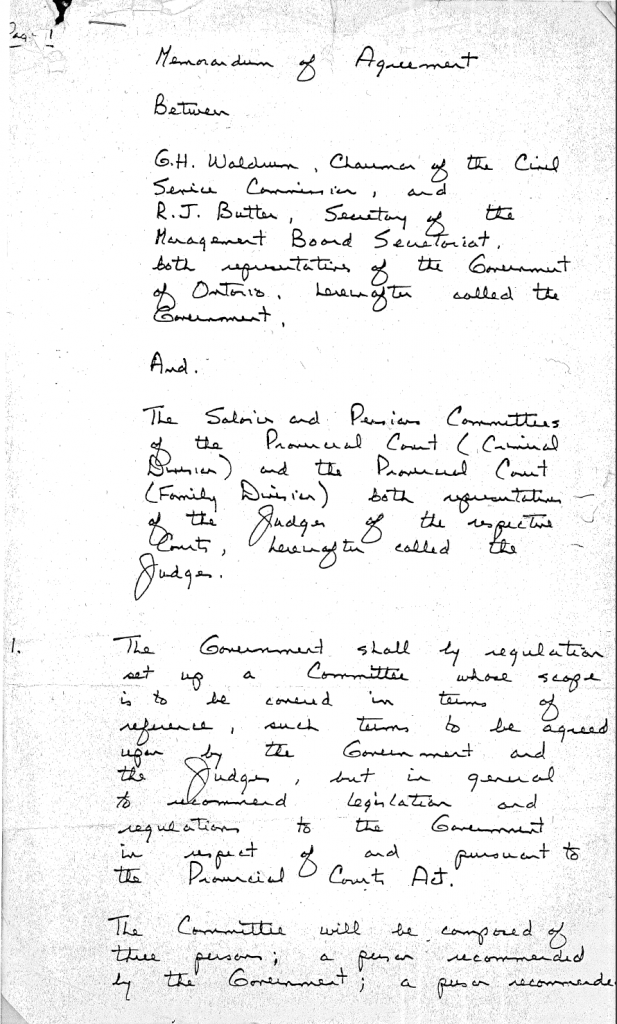 Page 1
Memorandum of Agreement
Between
G.H. Waldrum, Chairman of the Civil
Service Commission, and
R.J. Butler, Secretary of the
Management Board Secretariat,
both representatives of the Government
of Ontario, hereinafter called the
Government,
And.
The Salaries and Pensions Committees
of the Provincial Court (Criminal
Division) and the Provincial Court
(Family Division) both representatives
of the Judges of the respective
Courts, hereinafter called the
Judges.
1. The Government shall by regulation
set up a Committee whose scope
is to be covered in terms of
reference, such terms to be agreed
upon by the Government and
the Judges, but in general
to recommend legislation and
regulations to the Government
in respect of and pursuant to
the Provincial Courts Act.
The Committee will be composed of
three persons; a person recommended
by the Government; a person recommende